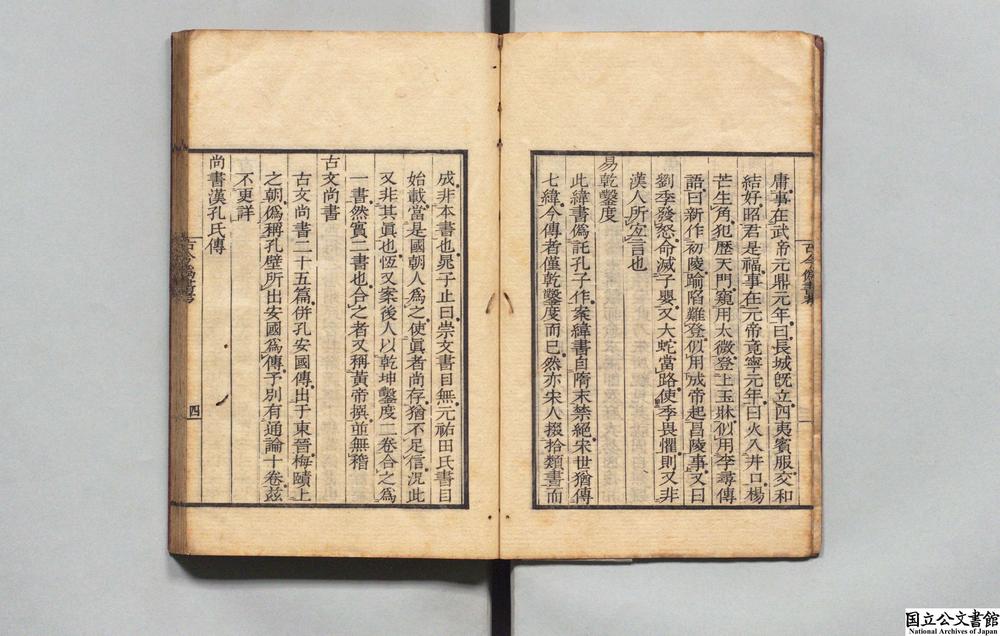 庸事在武帝元鼎元年曰長城既立四夷賓服交和
結好昭君是福事在元帝竟寧元年曰火入井口楊
芒生角犯歷天門窺用太微登上玉牀似用李尋傳
語曰新作初陵踰陷難登似用成帝起昌陵事又曰
劉季發怒命滅子嬰又大蛇當路使季畏懼則又非
漢人所宜言也
易乾鑿度
此緯書偽託孔子作案緯書自隋末禁絕宋世猶傳
七緯今傳者僅乾鑿度而已然亦宋人掇拾類書而
成非本書也晁子止曰崇文書目無元祐田氏書目
始載當是國朝人為之使真者尚存猶不足信況此
又非其真也恆又案後人以乾坤鑿度二卷合之為
一書然實二書也合之者又稱黃帝撰並無稽
古文尚書
古文尚書二十五篇併孔安國傳出于東晉梅賾上
之朝偽稱孔壁所出安國為傳予別有通論十卷茲
不更詳
尚書漢孔氏傳
古今偽書考
四
国立公文書館
National Archives of Japan